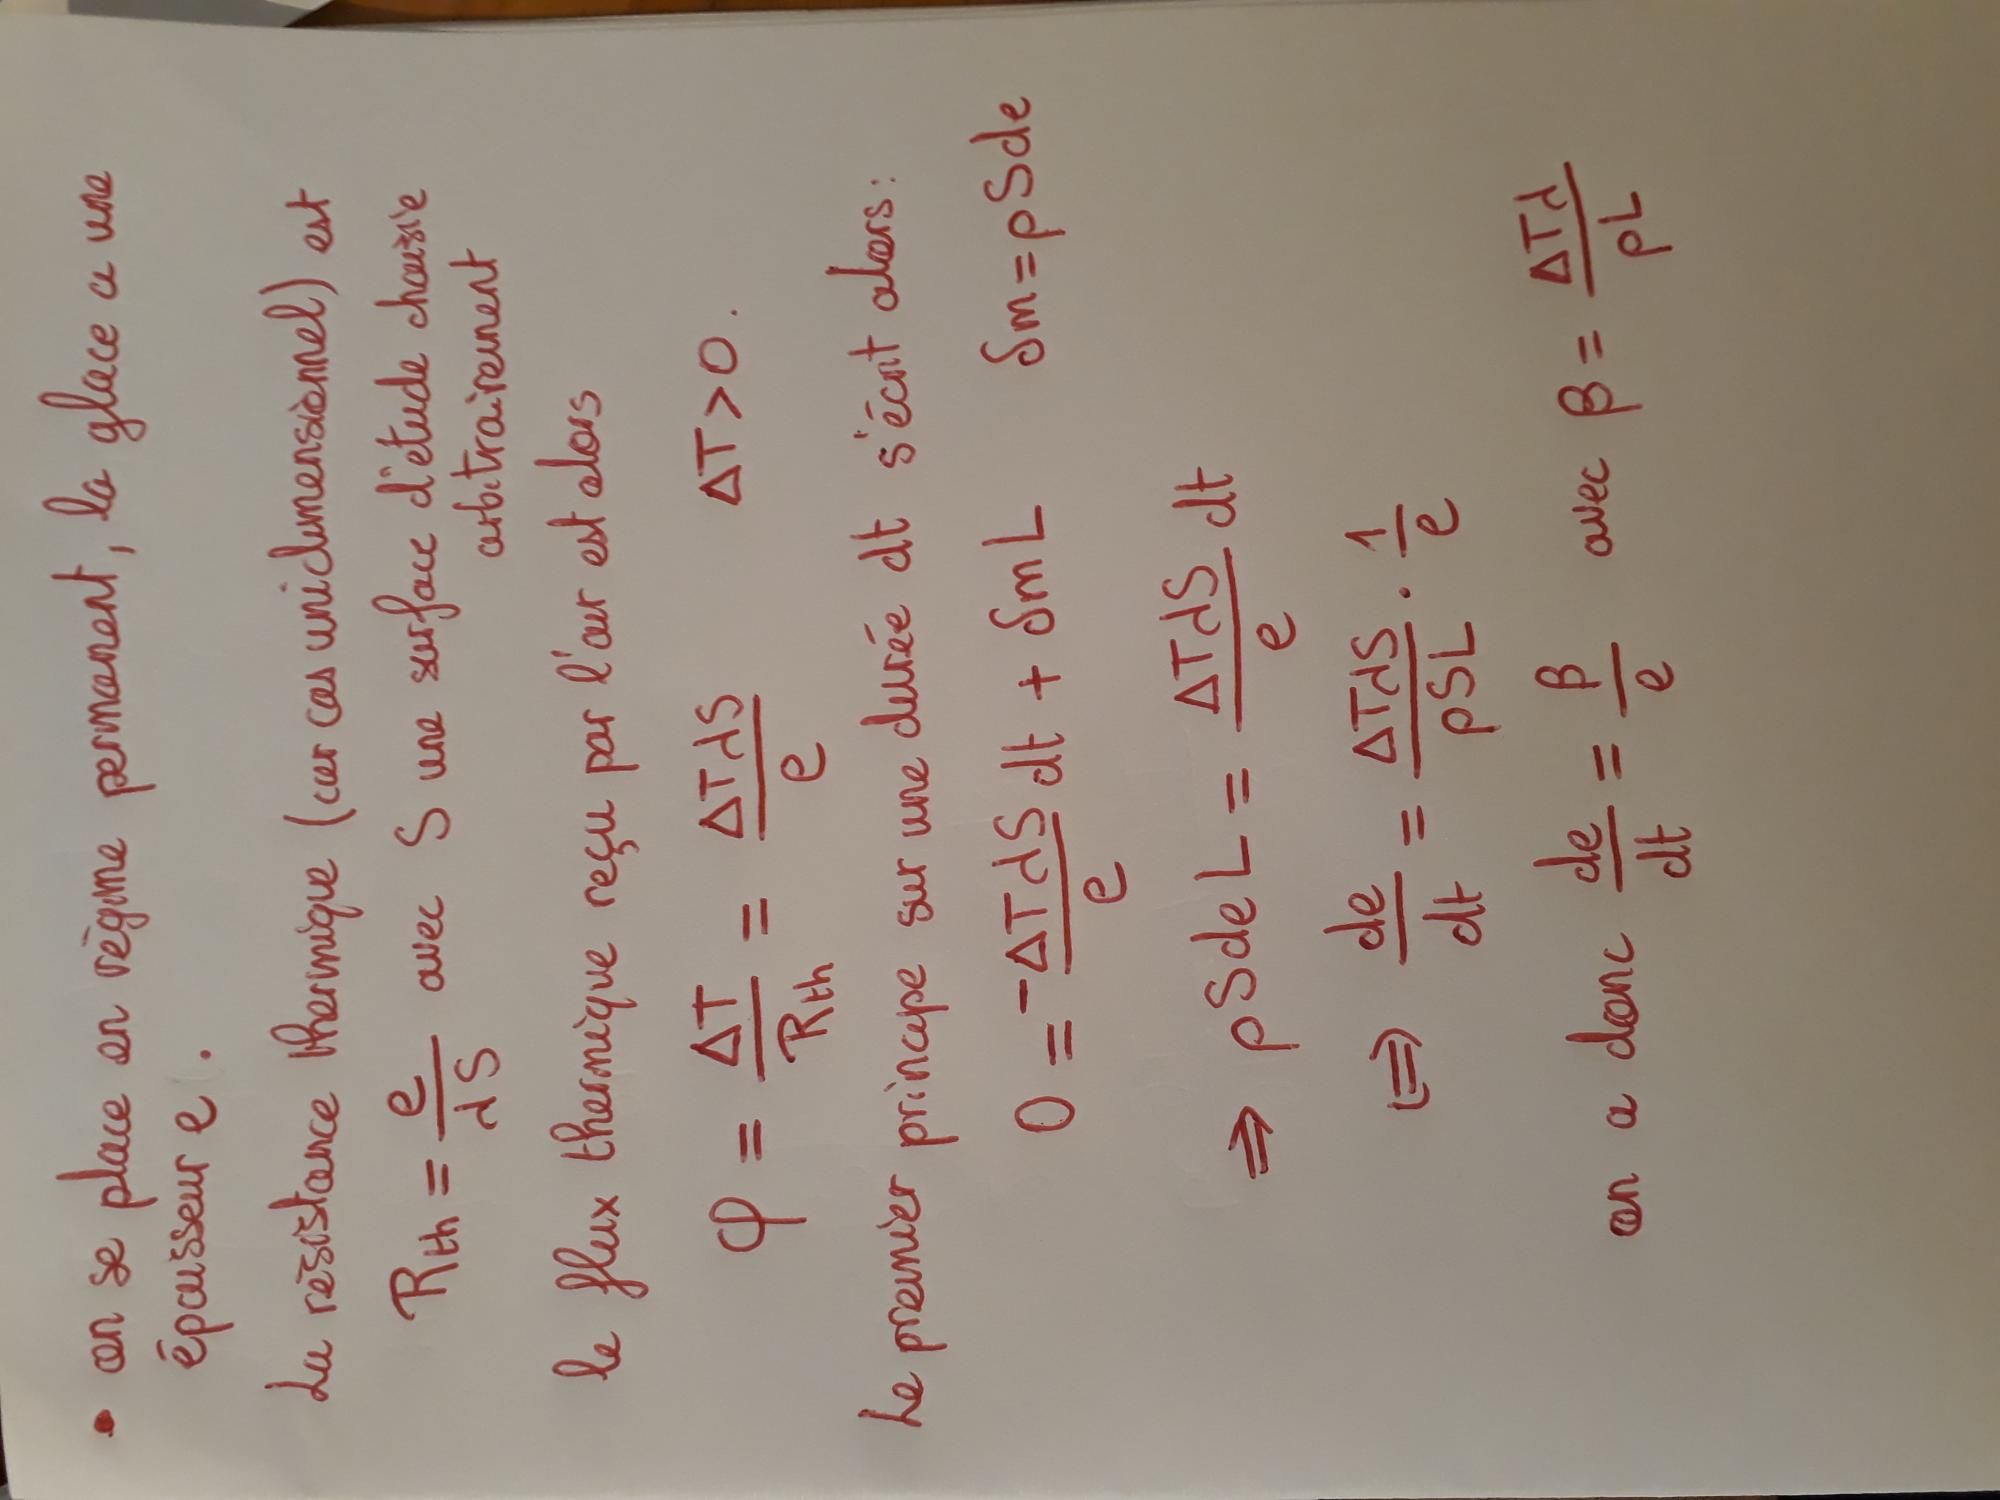 • on se place en régime permanent, la glace a une
épaisseur e.
La résistance thermique (car cas unidimensionnel) est
Rth = e/λS avec S une surface d'étude choisie
arbitrairement
le flux thermique reçu par l'air est alors
φ = ΔT/Rth = ΔTλS/e ΔT > 0.
Le premier principe sur une durée dt s'écrit alors:
0 = -ΔTλS/e dt + δmL δm = ρSde
⇒ ρSdeL = ΔTλS/e dt
⇔ de/dt = ΔTλS/ρSL · 1/e
on a donc de/dt = β/e avec β = ΔTλ/ρL